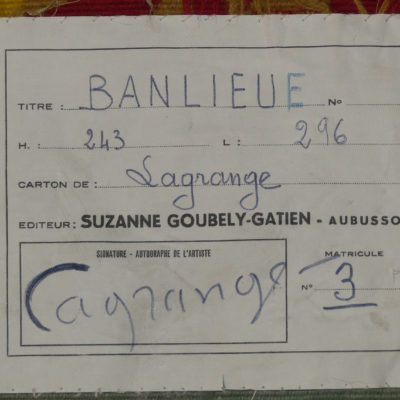 TITRE : BANLIEUE No
H. : 243 L : 296
CARTON DE : Lagrange
EDITEUR : SUZANNE GOUBELY-GATIEN - AUBUSSO
SIGNATURE - AUTOGRAPHE DE L'ARTISTE
MATRICULE
Lagrange
N° 3